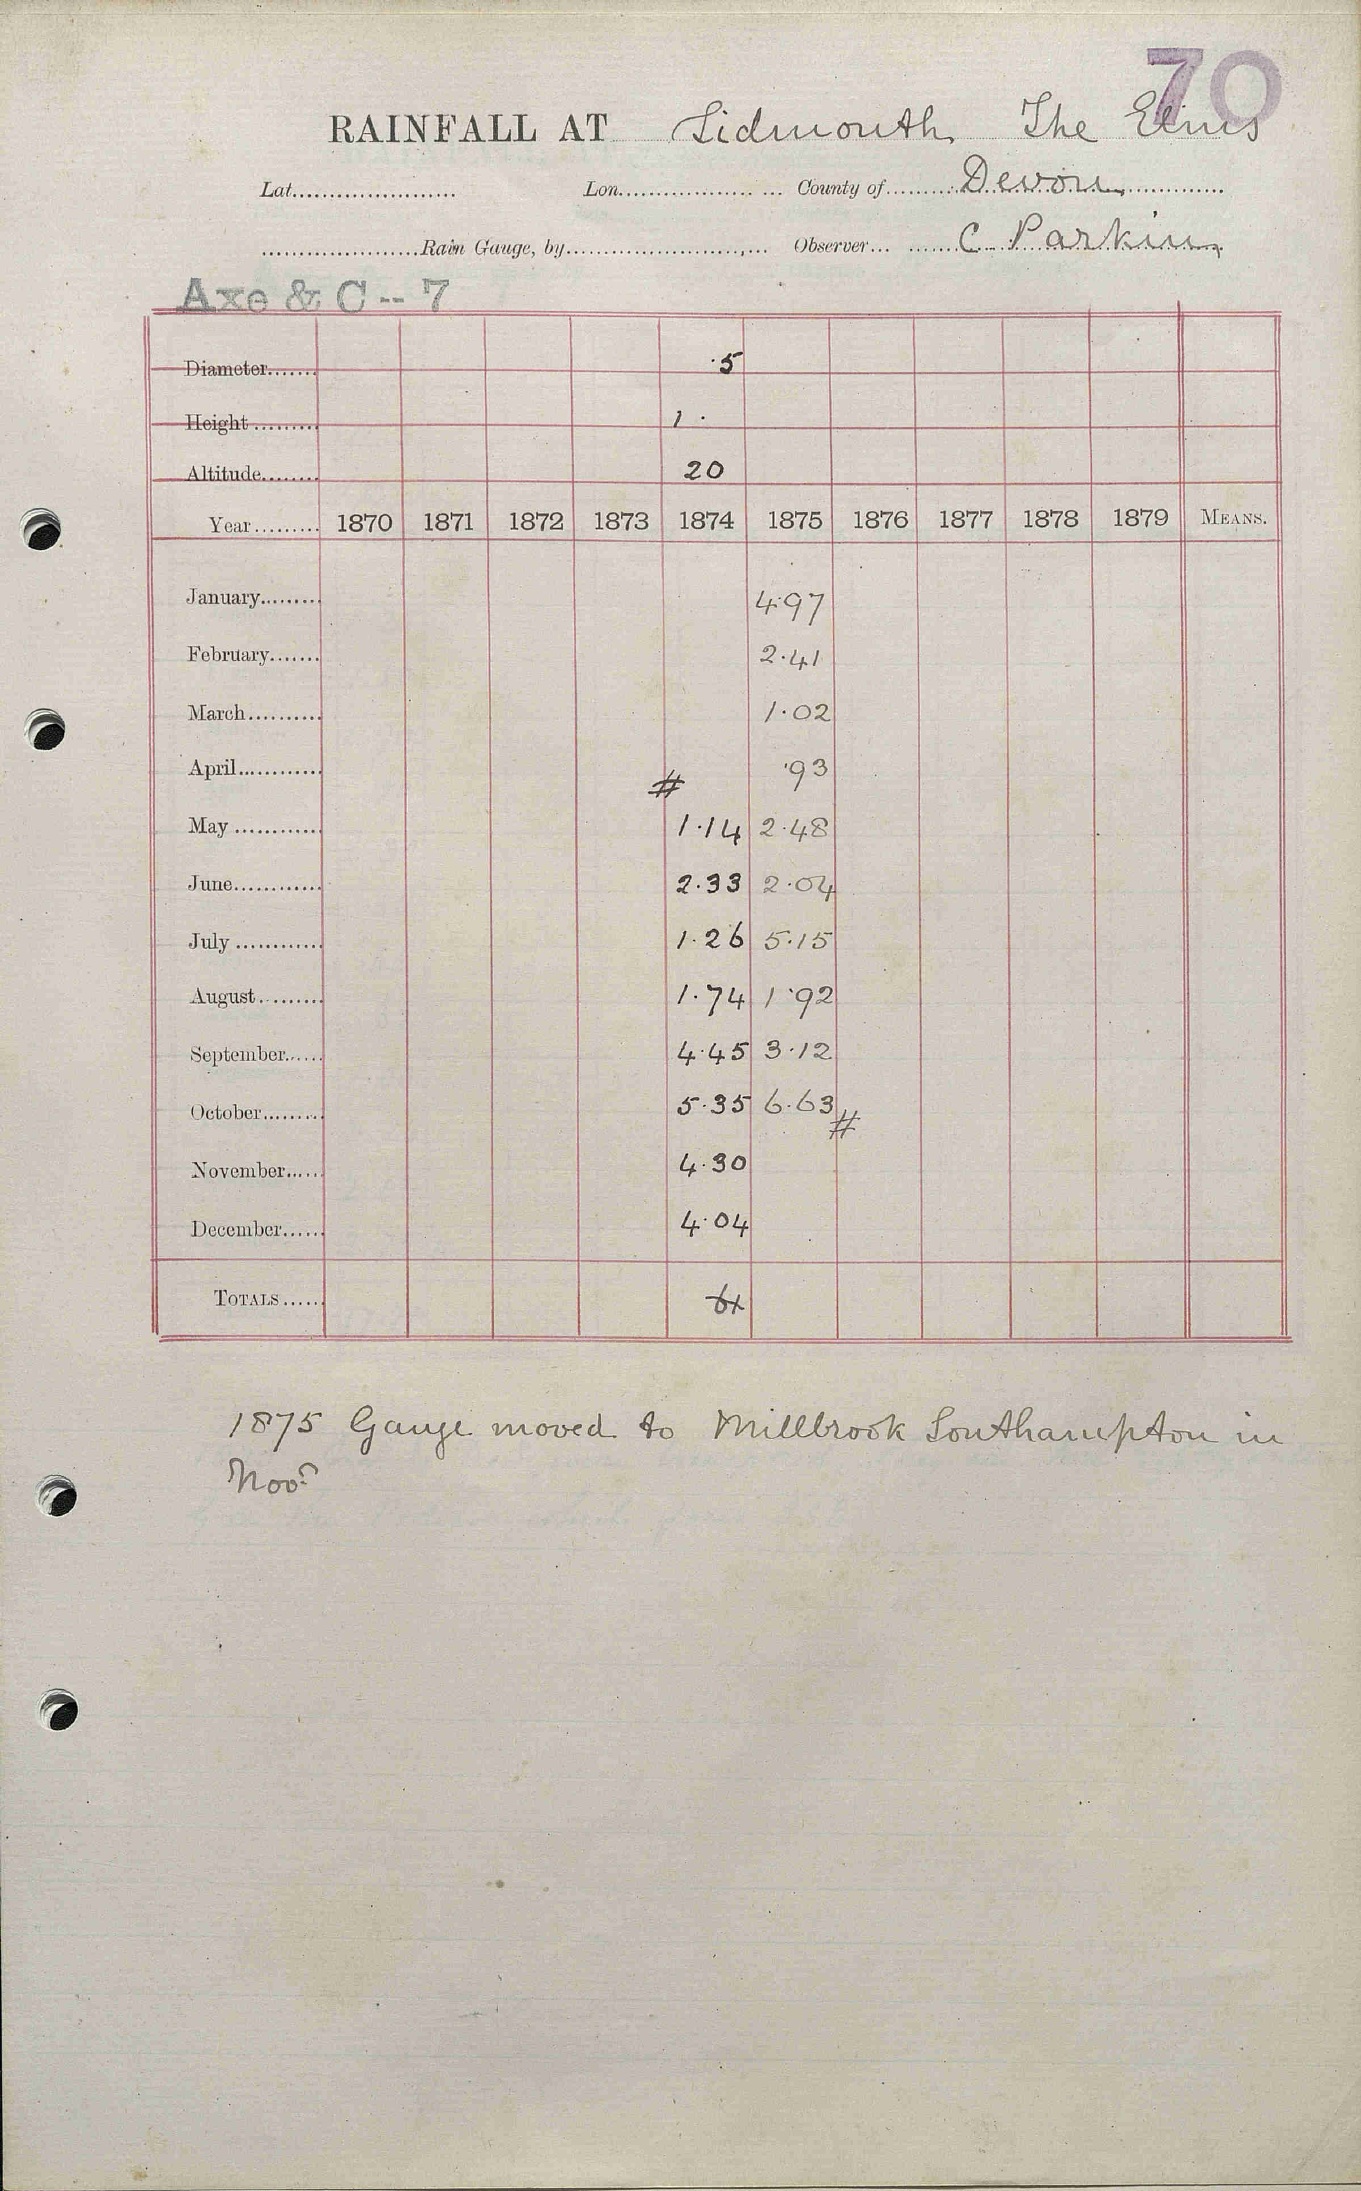 70
RAINFALL AT Sidmouth, The Elms
Lat. Lon. County of Devon
Rain Gauge, by Observer C Parkin
Axe & C -- 7
Diameter 5
Height 1 .
Altitude 20
Year 1870 1871 1872 1873 1874 1875 1876 1877 1878 1879 MEANS.
January 4.97
February 2.41
March 1.02
April # .93
May 1.14 2.48
June 2.33 2.04
July 1.26 5.15
August 1.74 1.92
September 4.45 3.12
October 5.35 6.63 #
November 4.30
December 4.04
TOTALS
1875 Gauge moved to Millbrook Southampton in
Novr